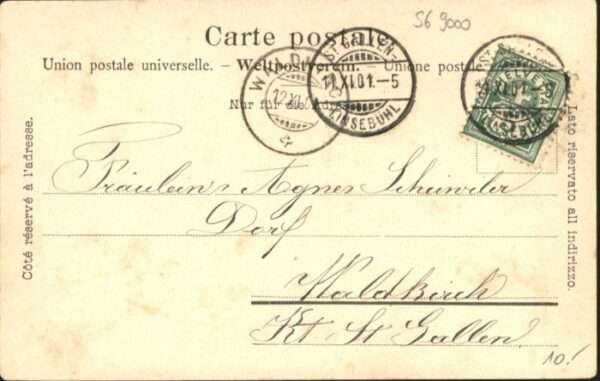 S6 9000
Carte postale.
Union postale universelle. — Weltpostverein. — Unione postale
Nur für die Adresse
WALD
12.XI.
ST. GALLEN-
11.XI.01.-5
LINSEBÜHL
HELVETIA
XI.01.
LINSEBÜHL
Côté réservé à l'adresse.
Lato riservato all indirizzo.
Fräulein Agnes
Dorf
Waldkirch
Kt. St. Gallen
10.!